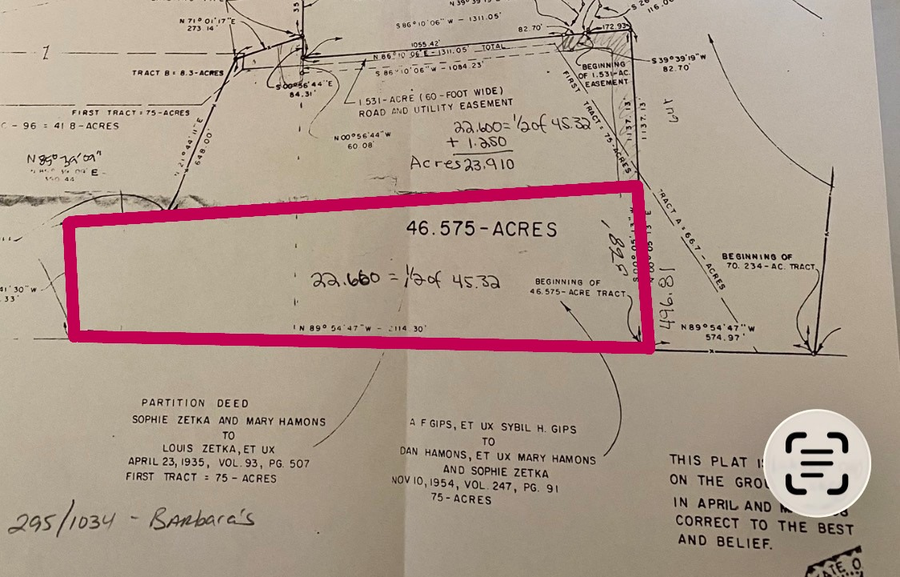 N 71° 01' 17" E
273.14'
S 86° 10' 06" W - 1311.05'
82.70'
172.93'
1
1055.42'
N 86° 10' 06" E - 1311.05' TOTAL
S 86° 10' 06" W - 1084.23'
TRACT B = 8.3-ACRES
S 00° 56' 44" E
84.31'
BEGINNING
OF 1.531-AC.
EASEMENT
S 39° 39' 19" W
82.70'
1.531-ACRE (60-FOOT WIDE)
ROAD AND UTILITY EASEMENT
FIRST TRACT = 75-ACRES
C - 96 = 41 B-ACRES
N 21° 44' 11" E
648.00'
N 00° 56' 44" W
60.08'
22.660 = 1/2 of 45.32
+ 1.250
Acres 23.910
FIRST TRACT = 75-ACRES
1137.13'
1137.13'
TRACT A = 66.7-ACRES
46.575-ACRES
22.660 = 1/2 of 45.32
BEGINNING OF
46.575-ACRE TRACT
BEGINNING OF
70.234-AC. TRACT
496.81
41' 30" W
.33'
N 89° 54' 47" W - 2114.30'
N 89° 54' 47" W
574.97'
PARTITION DEED
SOPHIE ZETKA AND MARY HAMONS
TO
LOUIS ZETKA, ET UX
APRIL 23, 1935, VOL. 93, PG. 507
FIRST TRACT = 75 - ACRES
A F GIPS, ET UX SYBIL H. GIPS
TO
DAN HAMONS, ET UX MARY HAMONS
AND SOPHIE ZETKA
NOV 10, 1954, VOL. 247, PG. 91
75-ACRES
THIS PLAT
ON THE
IN APRIL AND
CORRECT TO THE BEST
AND BELIEF.
295/1034 - Barbara's